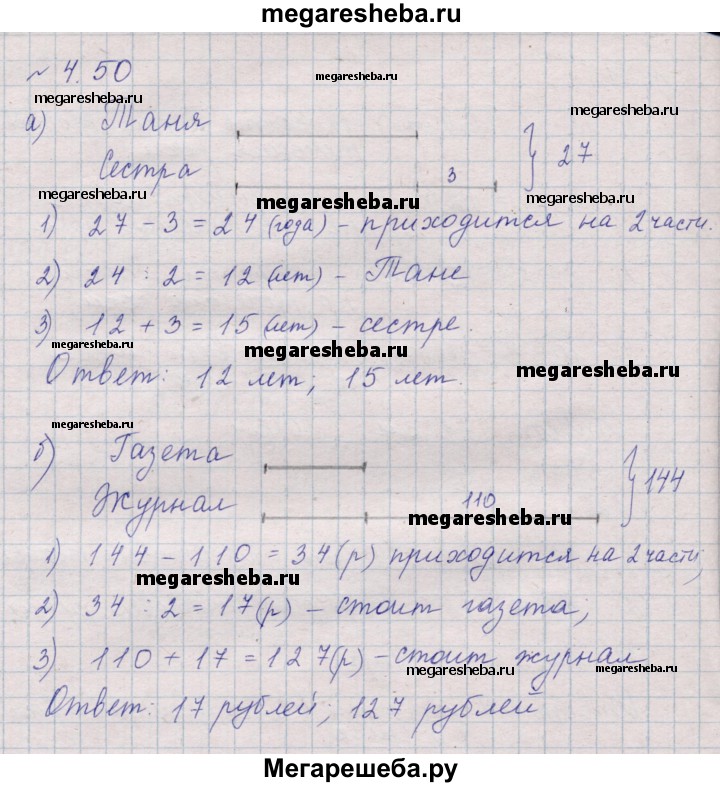 megaresheba.ru
№ 4.50
megaresheba.ru
megaresheba.ru
megaresheba.ru
а) Таня
Сестра 3 } 27
megaresheba.ru
megaresheba.ru
megaresheba.ru
1) 27 - 3 = 24 (года) - приходится на 2 части.
2) 24 : 2 = 12 (лет) - Тане
3) 12 + 3 = 15 (лет) - сестре.
megaresheba.ru
Ответ: 12 лет; 15 лет.
megaresheba.ru
megaresheba.ru
б) Газета
Журнал 110 } 144
megaresheba.ru
1) 144 - 110 = 34 (р) приходится на 2 части;
megaresheba.ru
2) 34 : 2 = 17 (р) - стоит газета;
3) 110 + 17 = 127 (р) - стоит журнал
megaresheba.ru
megaresheba.ru
Ответ: 17 рублей; 127 рублей
Мегарешеба.ру